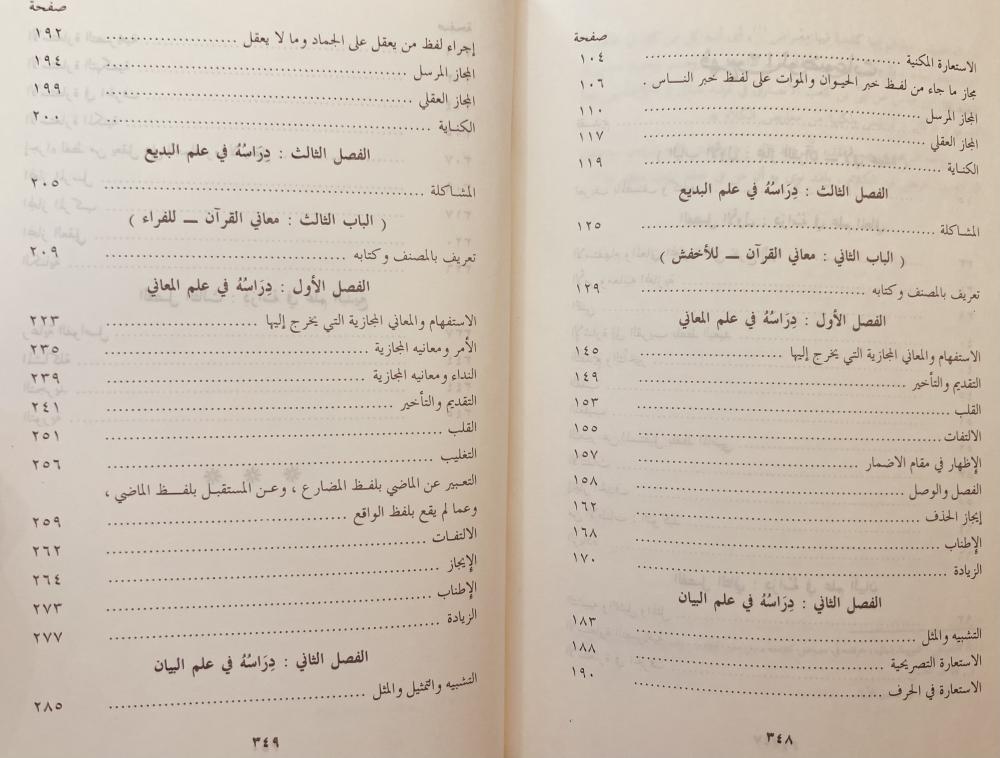 صفحة
الاستعارة المكنية ........ ١٠٤
مجاز ما جاء من لفظ خبر الحيوان والموات على لفظ خبر الناس . ١٠٦
المجاز المرسل ........ ١١٠
المجاز العقلي ........ ١١٧
الكناية ........ ١١٩
الفصل الثالث : دِرَاسُهُ في علم البديع
المشاكلة ........ ١٢٥
( الباب الثاني : معاني القرآن ــ للأخفش )
تعريف بالمصنف وكتابه ........ ١٢٩
الفصل الأول : دِرَاسُهُ في علم المعاني
الاستفهام والمعاني المجازية التي يخرج إليها ........ ١٤٥
التقديم والتأخير ........ ١٤٩
القلب ........ ١٥٣
الالتفات ........ ١٥٥
الإظهار في مقام الاضمار ........ ١٥٧
الفصل والوصل ........ ١٥٨
إيجاز الحذف ........ ١٦٢
الإطناب ........ ١٦٨
الزيادة ........ ١٧٠
الفصل الثاني : دِرَاسُهُ في علم البيان
التشبيه والمثل ........ ١٨٣
الاستعارة التصريحية ........ ١٨٨
الاستعارة في الحرف ........ ١٩٠
٣٤٨
صفحة
إجراء لفظ من يعقل على الجماد وما لا يعقل ........ ١٩٢
المجاز المرسل ........ ١٩٤
المجاز العقلي ........ ١٩٩
الكناية ........ ٢٠٠
الفصل الثالث : دِرَاسُهُ في علم البديع
المشاكلة ........ ٢٠٥
( الباب الثالث : معاني القرآن ــ للفراء )
تعريف بالمصنف وكتابه ........ ٢٠٩
الفصل الأول : دِرَاسُهُ في علم المعاني
الاستفهام والمعاني المجازية التي يخرج إليها ........ ٢٢٣
الأمر ومعانيه المجازية ........ ٢٣٥
النداء ومعانيه المجازية ........ ٢٣٩
التقديم والتأخير ........ ٢٤١
القلب ........ ٢٥١
التغليب ........ ٢٥٦
التعبير عن الماضي بلفظ المضارع ، وعن المستقبل بلفظ الماضي ،
وعما لم يقع بلفظ الواقع ........ ٢٥٩
الالتفات ........ ٢٦٢
الإيجاز ........ ٢٦٤
الإطناب ........ ٢٧٣
الزيادة ........ ٢٧٧
الفصل الثاني : دِرَاسُهُ في علم البيان
التشبيه والتمثيل والمثل ........ ٢٨٥
٣٤٩